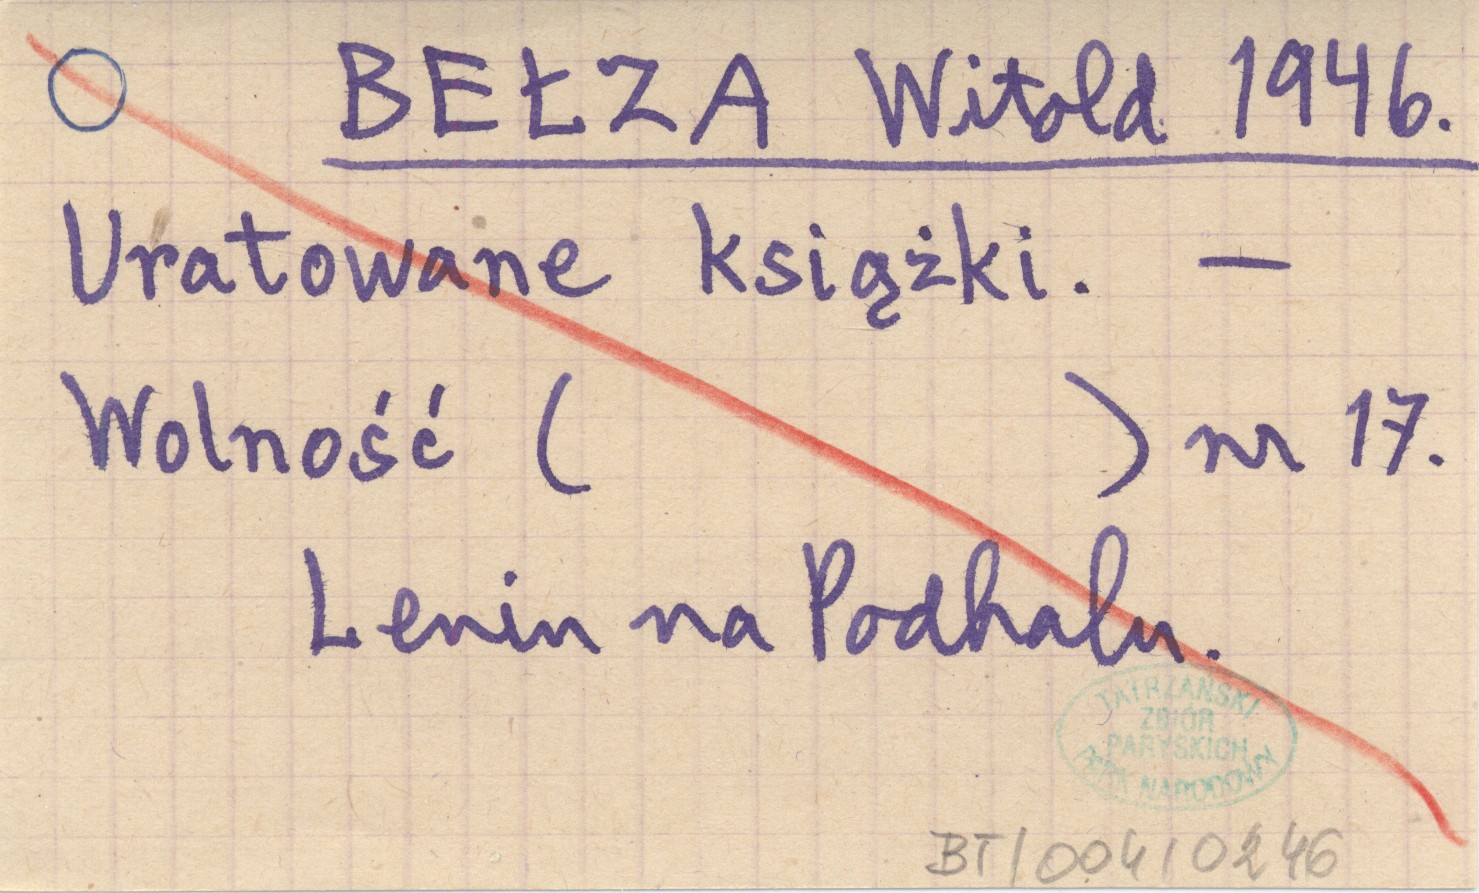 BEŁZA Witold 1946.
Uratowane książki. —
Wolność ( ) nr 17.
Lenin na Podhalu.
TATRZAŃSKI
ZBIÓR
PARYSKICH
PARK NARODOWY
BT/004/0246